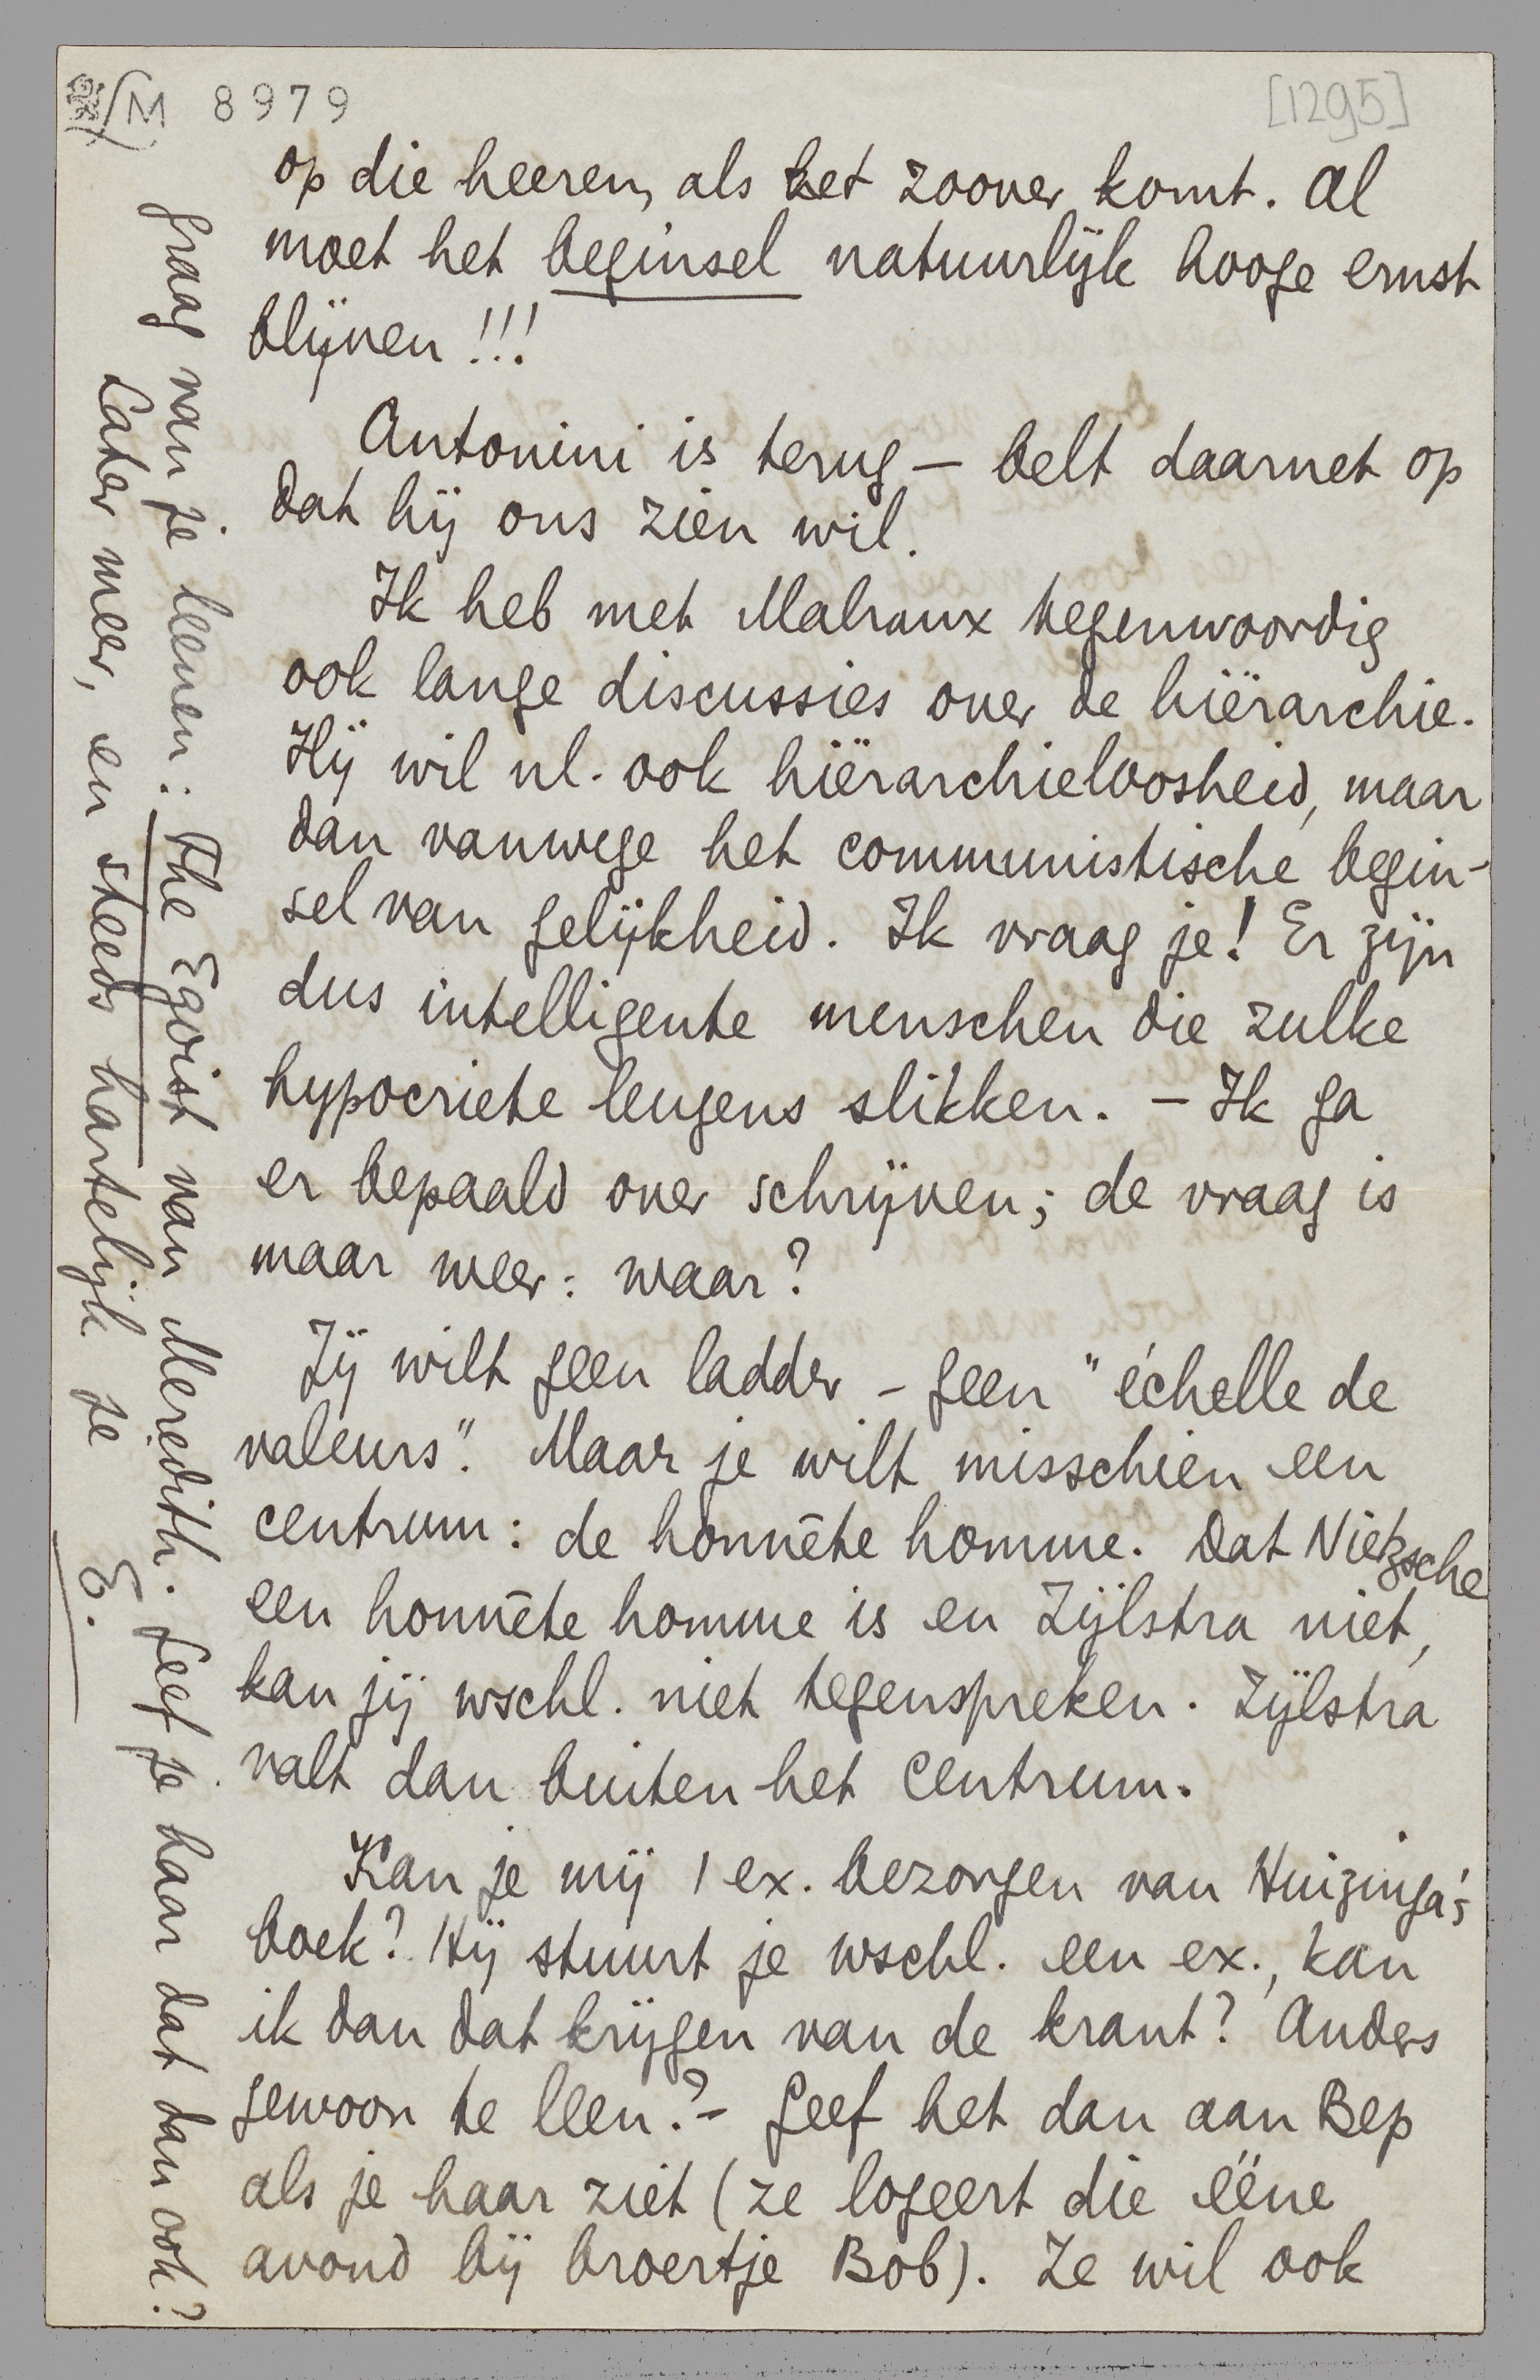 M 8979
[1295]
op die heeren, als het zoover komt. Al
moet het beginsel natuurlijk hooge ernst
blijven!!!
Antonini is terug — belt daarnet op
dat hij ons zien wil.
Ik heb met Malraux tegenwoordig
ook lange discussies over de hiërarchie.
Hij wil nl. ook hiërarchieloosheid, maar
dan vanwege het communistische begin-
sel van gelijkheid. Ik vraag je! Er zijn
dus intelligente menschen die zulke
hypocriete leugens slikken. — Ik ga
er bepaald over schrijven; de vraag is
maar weer: waar?
Jij wilt geen ladder — geen "échelle de
valeurs". Maar je wilt misschien een
centrum: de honnête homme. Dat Nietzsche
een honnête homme is en Zijlstra niet,
kan jij wschl. niet tegenspreken. Zijlstra
valt dan buiten het centrum.
Kan je mij 1 ex. bezorgen van Huizinga's
boek? Hij stuurt je wschl. een ex., kan
ik dan dat krijgen van de krant? Anders
gewoon te leen? — Geef het dan aan Bep
als je haar ziet (ze logeert die ééne
avond bij broertje Bob). Ze wil ook
graag van je leenen: The Egoist van Meredith. Geef je haar dat dan ook?
Later meer, en steeds hartelijk je
E.